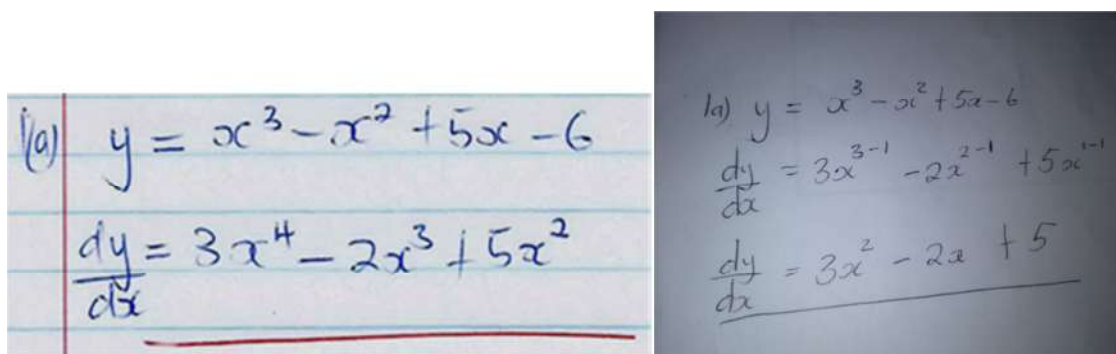 1(a) y = x³ − x² + 5x − 6
dy/dx = 3x⁴ − 2x³ + 5x²
1a) y = x³ − x² + 5x − 6
dy/dx = 3x³⁻¹ − 2x²⁻¹ + 5x¹⁻¹
dy/dx = 3x² − 2x + 5